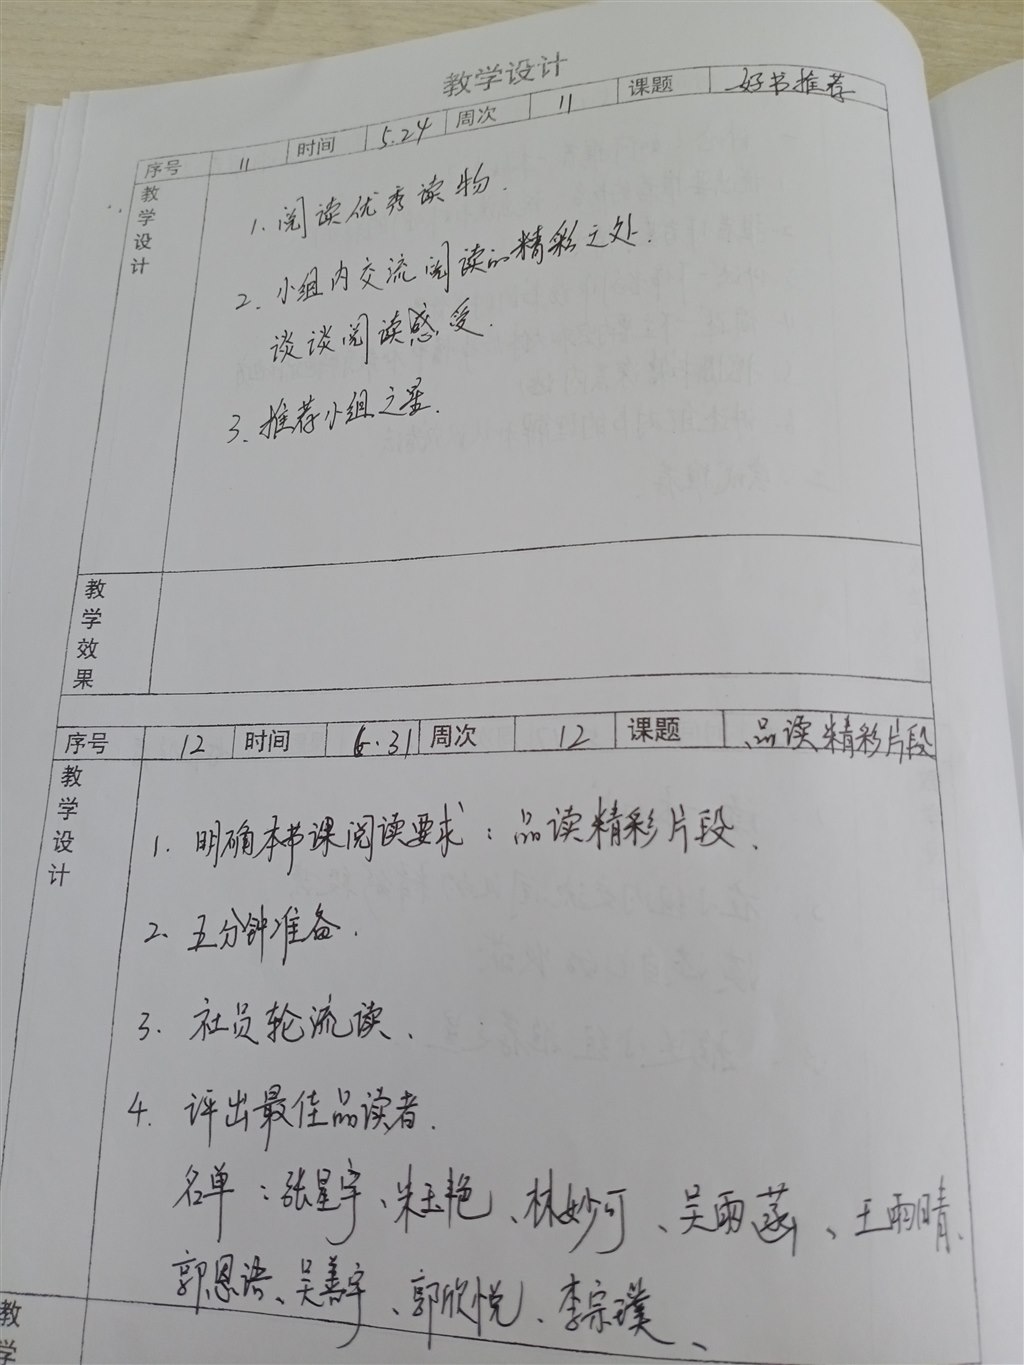 教学设计
序号 11 时间 5.24 周次 11 课题 好书推荐
教学设计
1. 阅读优秀读物.
2. 小组内交流阅读的精彩之处.
谈谈阅读感受.
3. 推荐小组之星.
教学效果
序号 12 时间 6.31 周次 12 课题 品读精彩片段
教学设计
1. 明确本书课阅读要求：品读精彩片段、
2. 五分钟准备.
3. 社员轮流读、
4. 评出最佳品读者.
名单：张星宇、朱玉艳、林妙可、吴雨菡、王雨晴、
郭恩语、吴善宇、郭欣悦、李宗璞、
教学